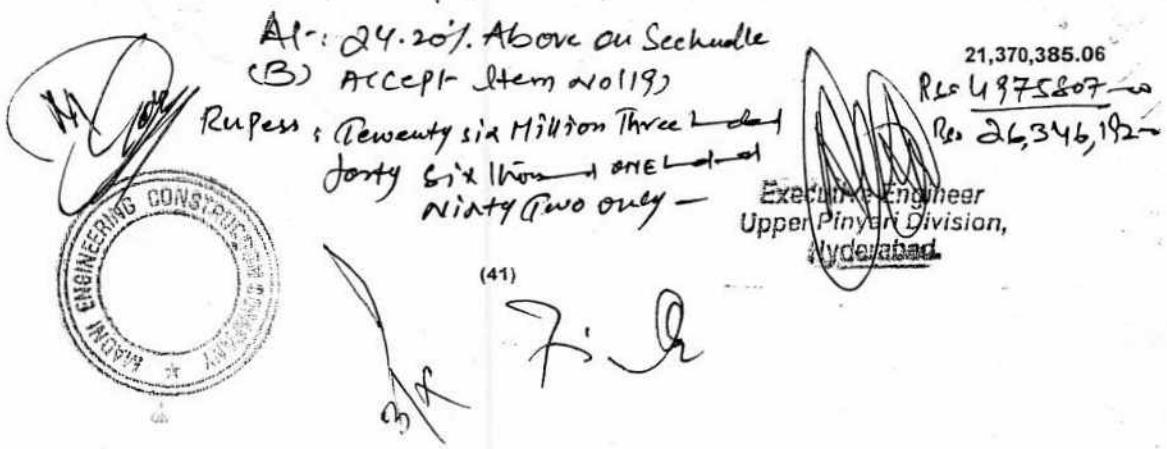 At-: 24.20%. Above on Sechudle
(B) Accept Item No(19)
Rupess : Tewenty six Million Three
forty six ONE
Ninty Two only -
21,370,385.06
Rs= 4975807-00
Rs. 26,346,192-
Executive Engineer
Upper Pinyari Division,
Hyderabad.
(41)
MADNI ENGINEERING CONSTRUCTION COMPANY